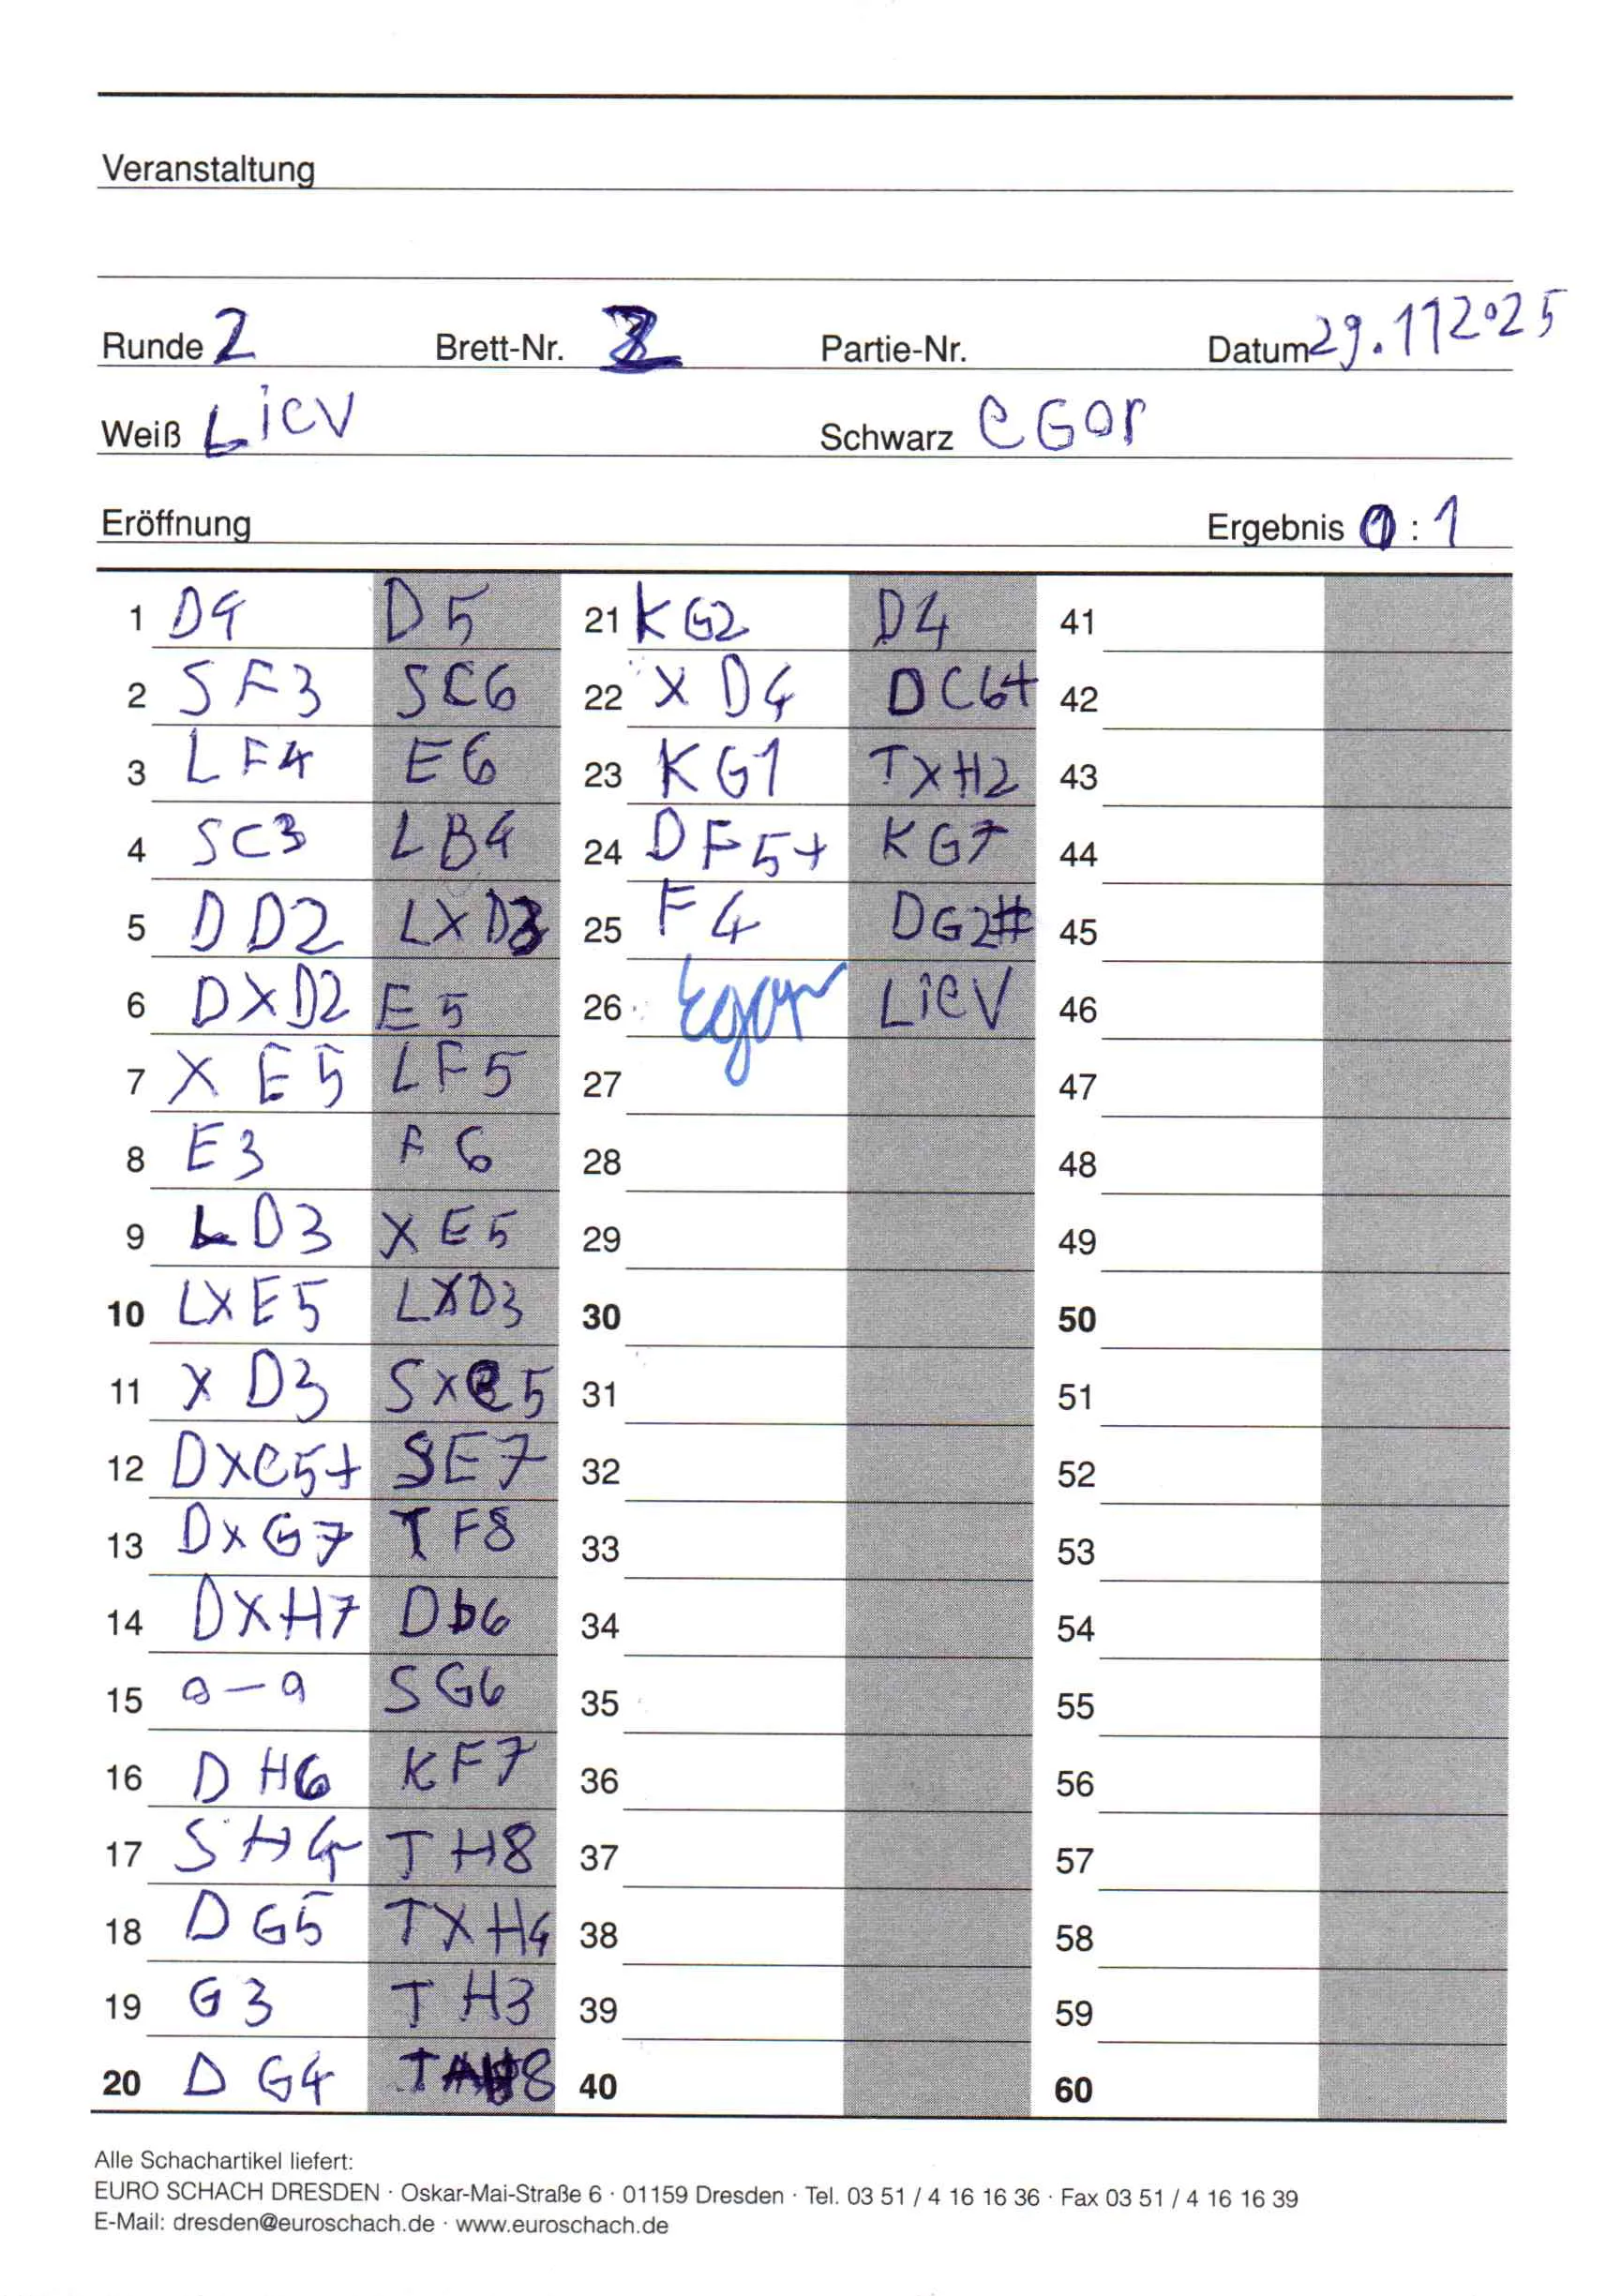 Veranstaltung
Runde 2 Brett-Nr. 2 Partie-Nr. Datum 29.112025
Weiß Liev Schwarz EGOr
Eröffnung Ergebnis 0 : 1
1 D4 D5 21 KG2 D4 41
2 SF3 SC6 22 X D4 DC6+ 42
3 LF4 E6 23 KG1 TXH2 43
4 SC3 LB4 24 DF5+ KG7 44
5 DD2 LXD2 25 F4 DG2# 45
6 DXD2 E5 26 Egor LieV 46
7 X E5 LF5 27 47
8 E3 F6 28 48
9 LD3 XE5 29 49
10 LXE5 LXD3 30 50
11 X D3 SXE5 31 51
12 DXe5+ SE7 32 52
13 DxG7 TF8 33 53
14 DXH7 Db6 34 54
15 0-0 SG6 35 55
16 DH6 KF7 36 56
17 SH4 TH8 37 57
18 DG5 TXH4 38 58
19 G3 TH3 39 59
20 DG4 TAH8 40 60
Alle Schachartikel liefert:
EURO SCHACH DRESDEN · Oskar-Mai-Straße 6 · 01159 Dresden · Tel. 03 51 / 4 16 16 36 · Fax 03 51 / 4 16 16 39
E-Mail: dresden@euroschach.de · www.euroschach.de